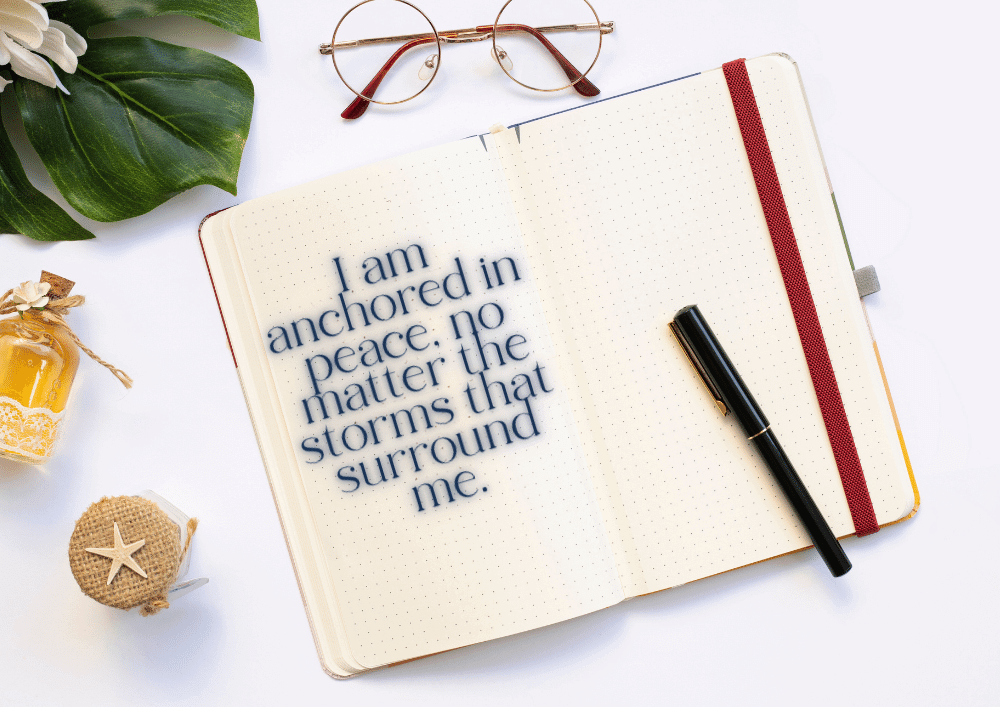 I am
anchored in
peace, no
matter the
storms that
surround
me.